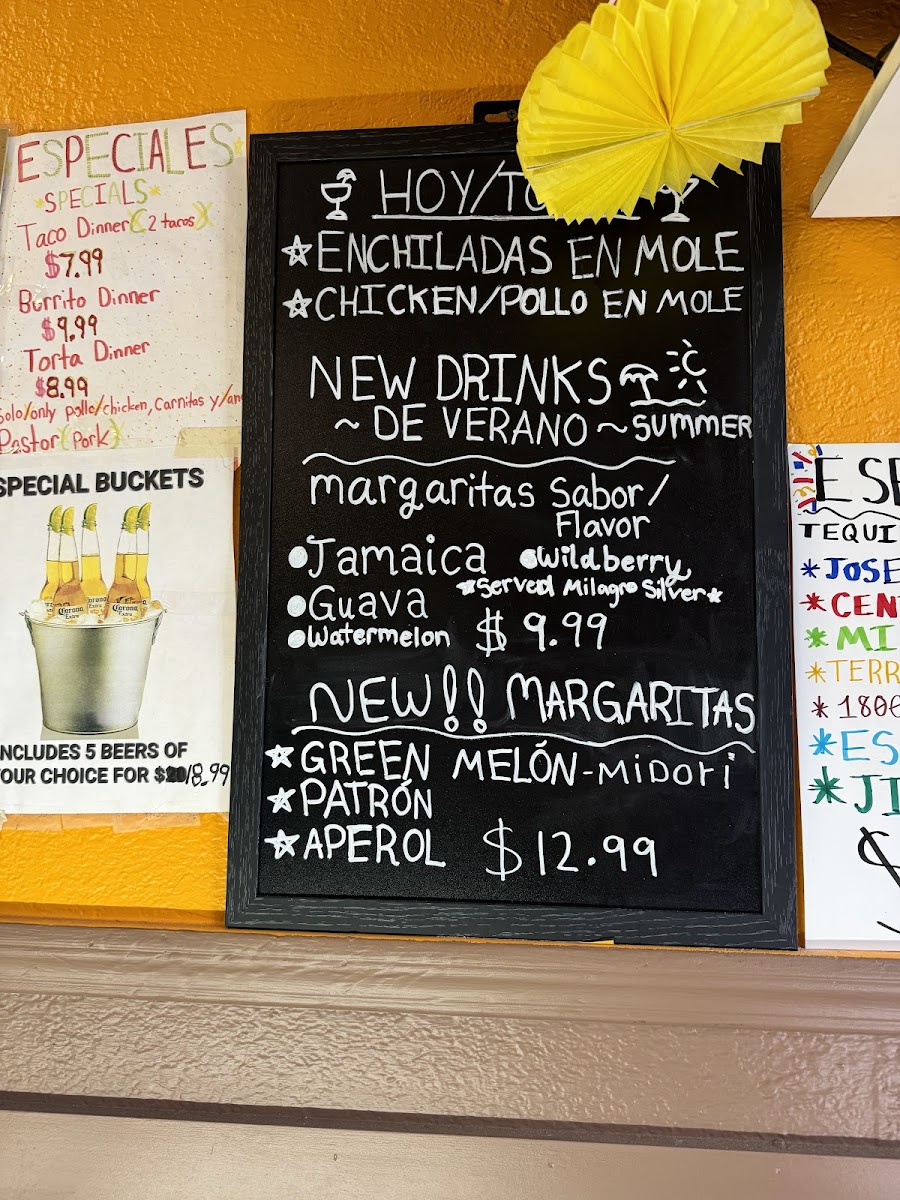 ESPECIALES
SPECIALS
Taco Dinner (2 tacos)
$7.99
Burrito Dinner
$9.99
Torta Dinner
$8.99
solo/only pollo/chicken, Carnitas y/an
Pastor (Pork)
SPECIAL BUCKETS
Corona
Extra
Corona
Extra
NCLUDES 5 BEERS OF
YOUR CHOICE FOR $20/18.99
HOY/TO
ENCHILADAS EN MOLE
CHICKEN/POLLO EN MOLE
NEW DRINKS
~ DE VERANO ~ SUMMER
margaritas Sabor/
Flavor
Jamaica
Wildberry
Served Milagro Silver
Guava
Watermelon
$9.99
NEW!! MARGARITAS
GREEN MELÓN-MIDORI
PATRÓN
APEROL
$12.99
ESP
TEQUI
JOSE
CEN
MI
TERR
1800
ES
JI
$